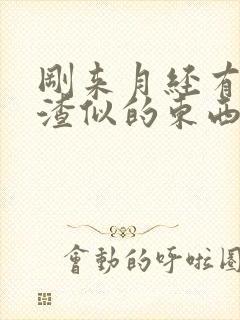 剛来月経有
渣似的東西
會動的呼啦圈